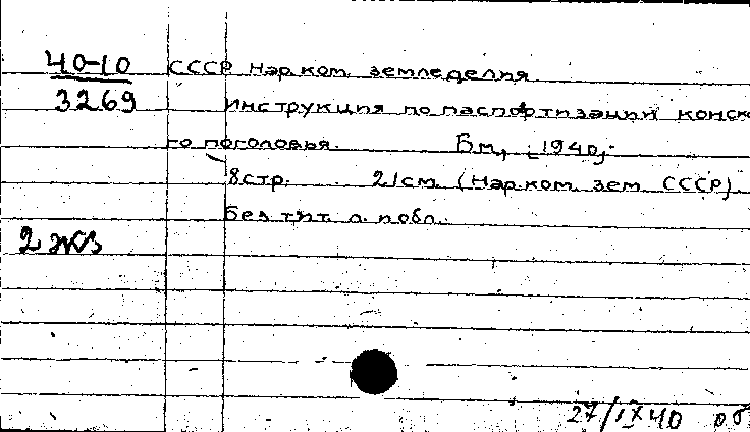 40-10 СССР Нар.ком. земледелия.
3269 Инструкция по паспортизации конско
го поголовья. Б.м., [1940].
8 стр. 21 см. (Нар.ком. зем. СССР).
Без тит. л. и обл.
2 экз
27/IX 40 об